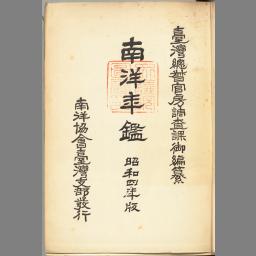 臺灣總督官房調查課御編纂
南洋年鑑
昭和四年版
南洋協會臺灣支部發行